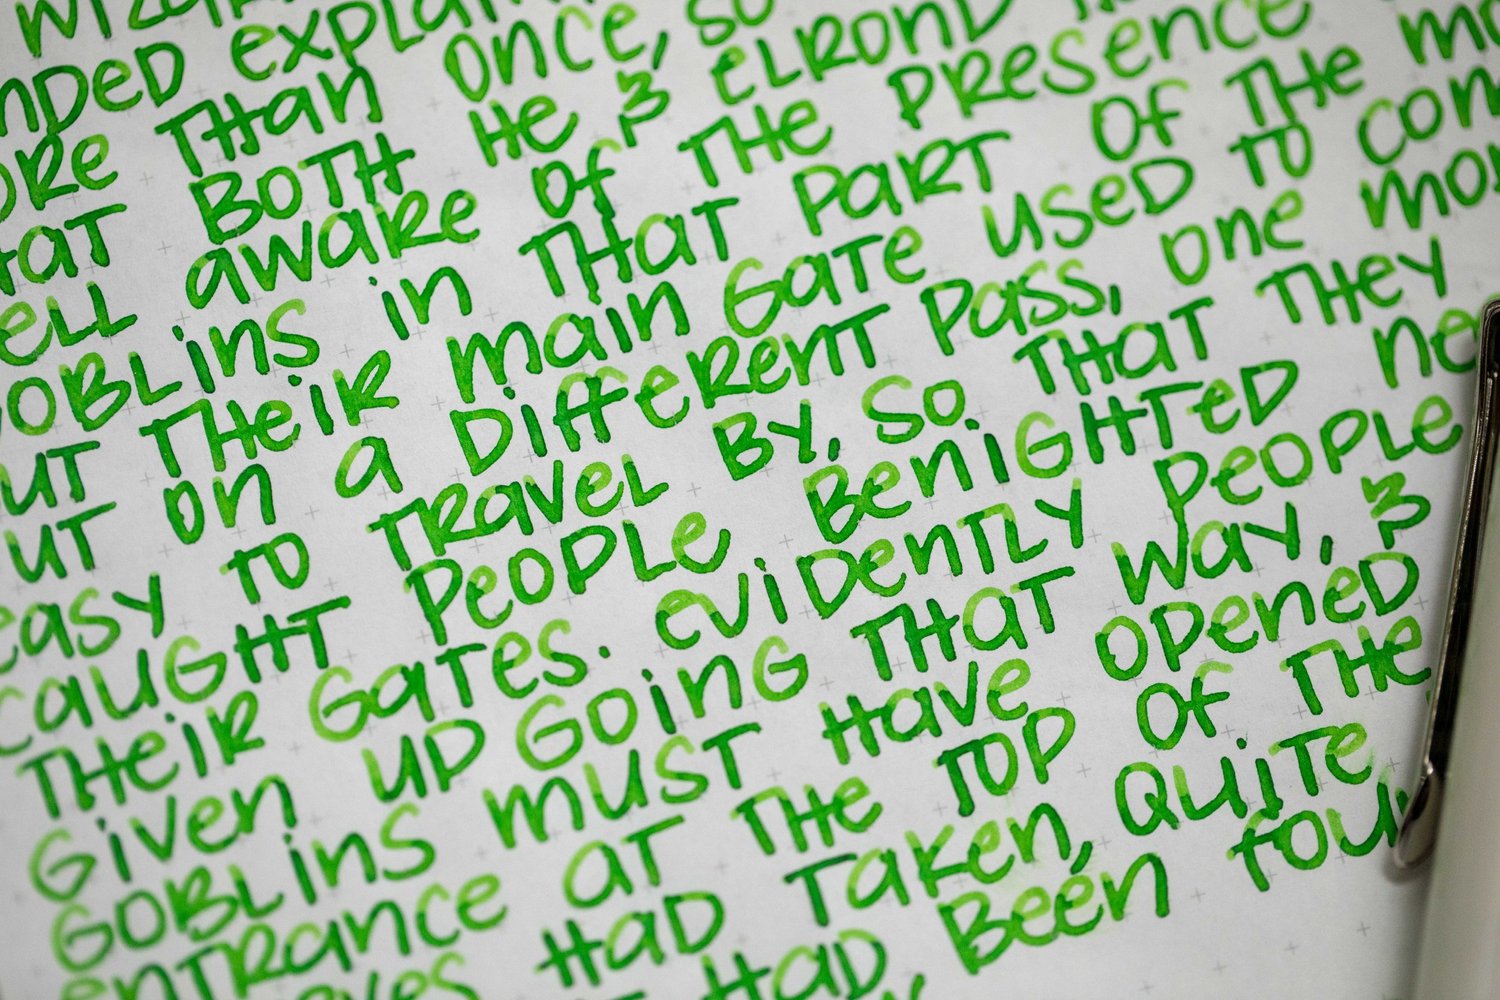 WIZARD
NDED EXPLAIN
ORE THAN ONCE, SO
HAT BOTH HE & ELROND
ELL AWARE OF THE PRESENCE
GOBLINS IN THAT PART OF THE MO
UT THEIR MAIN GATE USED TO COM
UT ON A DIFFERENT PASS, ONE MOR
EASY TO TRAVEL BY, SO THAT THEY
CAUGHT PEOPLE BENIGHTED NE
THEIR GATES. EVIDENTLY PEOPLE
GIVEN UP GOING THAT WAY, &
GOBLINS MUST HAVE OPENED
ENTRANCE AT THE TOP OF THE
VES HAD TAKEN, QUITE
HAD BEEN FOU